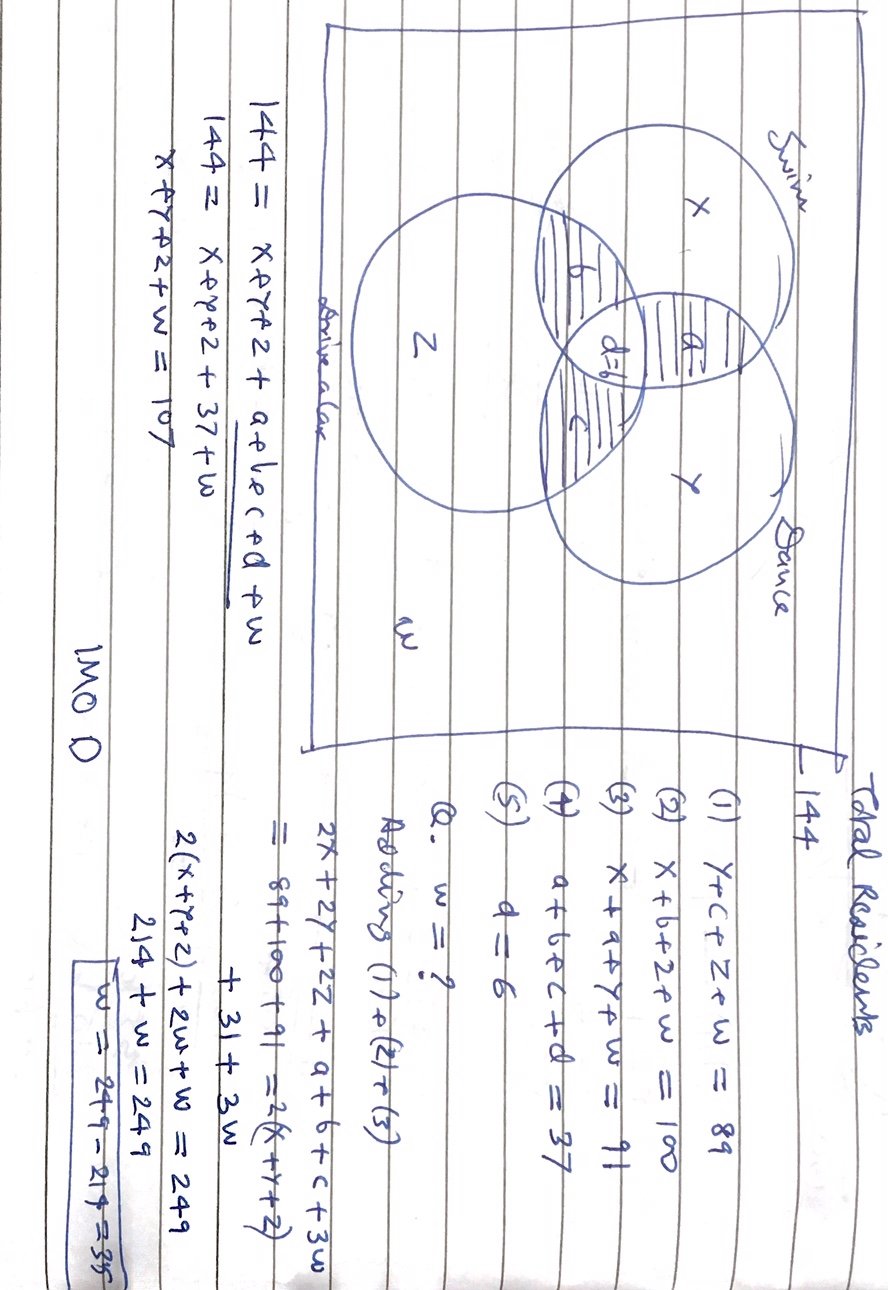 Total Residents
144
Swim
Dance
X
a
Y
b
d=6
c
Z
W
Drive a car
(1) Y+c+Z+w = 89
(2) X+b+Z+w = 100
(3) X+a+Y+w = 91
(4) a+b+c+d = 37
(5) d = 6
Q. w = ?
Adding (1)+(2)+(3)
2X+2Y+2Z + a+b+c+3w
= 89+100+91 = 2(X+Y+Z)
+ 31 + 3w
2(X+Y+Z) + 2w+w = 249
214 + w = 249
w = 249-214 = 35
144 = X+Y+Z + a+b+c+d + w
144 = X+Y+Z + 37 + w
X+Y+Z + w = 107
IMO D